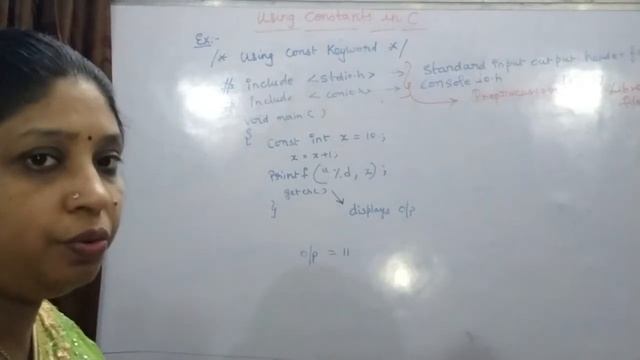 Using Constants in C
Ex:-
/* Using Const Keyword */
# include <stdio.h> → Standard input output header
# Include <conio.h> → Console io.h
void main( )
{ Const int x = 10;
x = x+1;
Printf ("%d, x);
getch( )
} displays o/p
o/p = 11